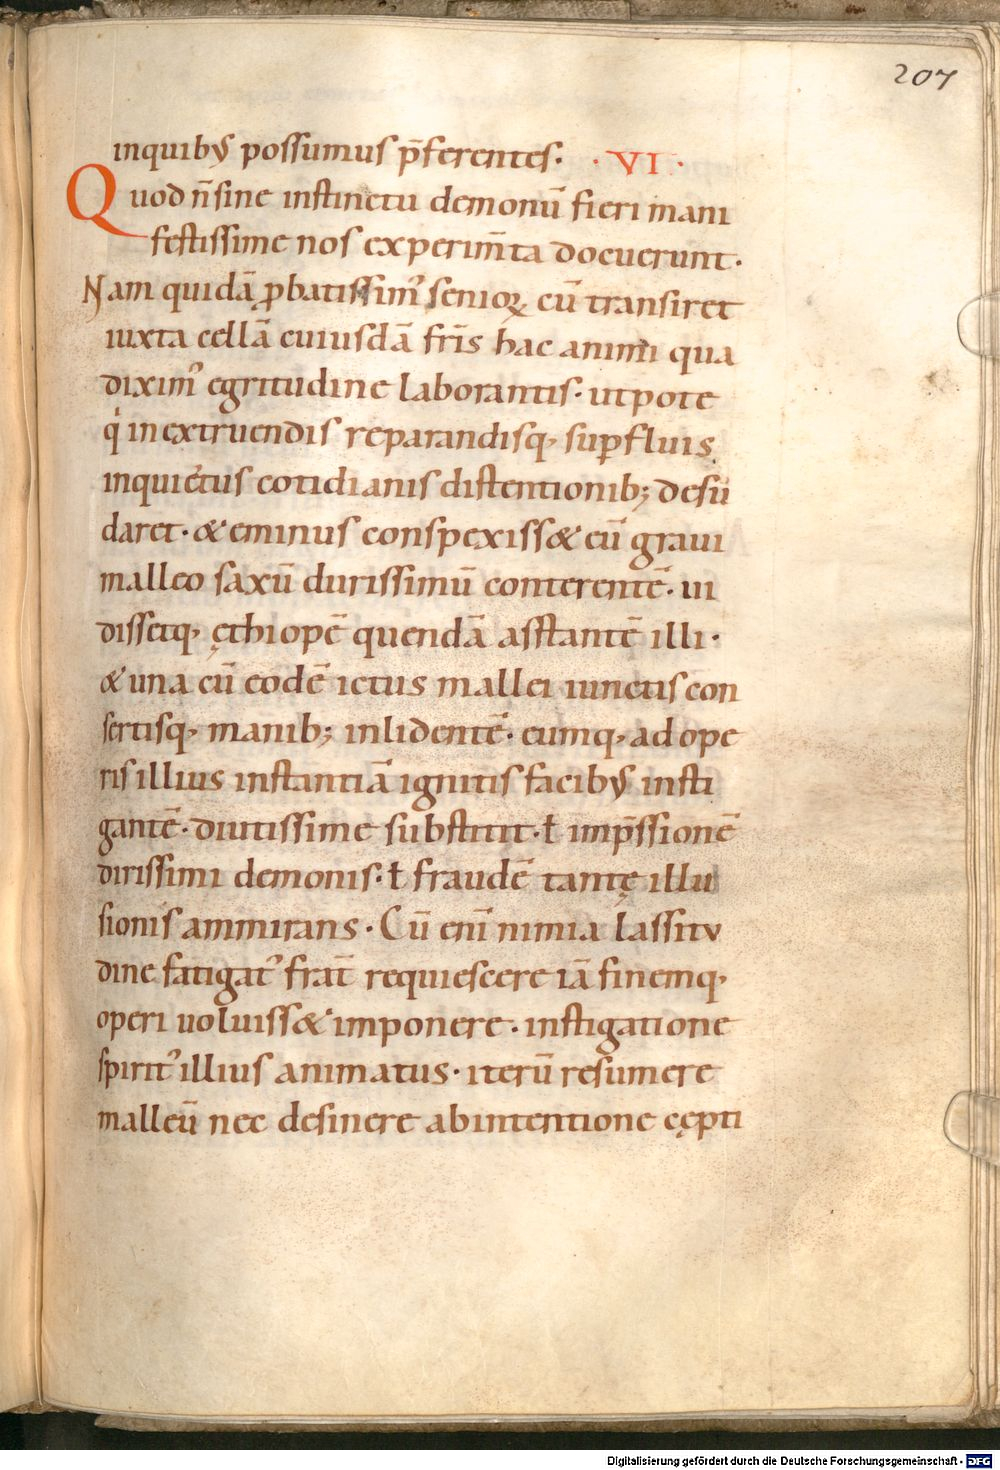 207
inquib᷒ possumus p̄ferentes. · VI ·
Quod n̄ sine instinctu demonū fieri mani
festissime nos experim̄ta docuerunt.
Nam quidā ꝓbatissim᷒ senioꝝ cū transiret
iuxta cellā cuiusdā fr̄is hac animi qua
dixim᷒ egritudine laborantis. utpote
qͥ in extruendis reparandisq; suꝑfluis
inquietus cotidianis distentionib; desu
daret. & eminus conspexiss& eū graui
malleo saxū durissimū conterentē. ui
dissetq; ęthiopē quendā asstantē illi.
& una cū eodē ictus mallei iunctis con
sertisq; manib; inlidentē. eumq; ad ope
ris illius instantiā ignitis facib᷒ insti
gantē. diutissime substitit. ł imp̄ssionē
dirissimi demonis. ł fraudē tantę illu
sionis ammirans. Cū enī nimia lassitu
dine fatigat᷒ frat̄ requiescere iā finemq;
operi uoluiss& imponere. instigatione
spirit᷒ illius animatus. iterū resumere
malleū nec desinere ab intentione cępti
Digitalisierung gefördert durch die Deutsche Forschungsgemeinschaft - DFG